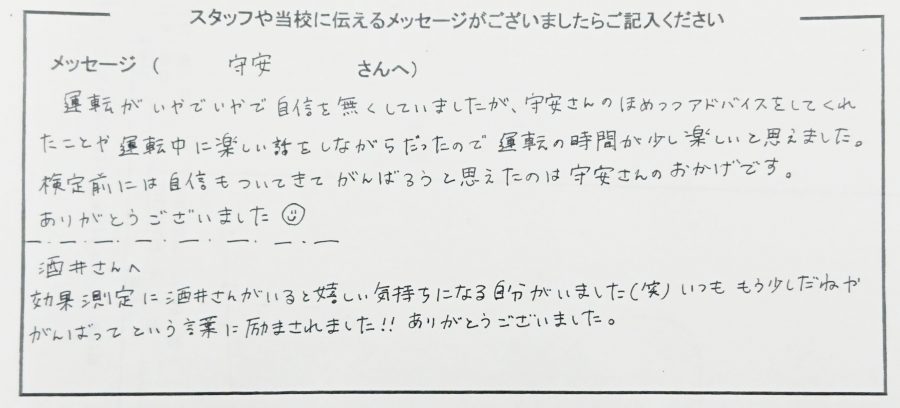 スタッフや当校に伝えるメッセージがございましたらご記入ください
メッセージ ( 守安 さんへ)
運転がいやでいやで自信を無くしていましたが、守安さんのほめつつアドバイスをしてくれ
たことや運転中に楽しい話をしながらだったので運転の時間が少し楽しいと思えました。
検定前には自信もついてきてがんばろうと思えたのは守安さんのおかげです。
ありがとうございました☺
酒井さんへ
効果測定に酒井さんがいると嬉しい気持ちになる自分がいました(笑)いつももう少しだねや
がんばってという言葉に励まされました!!ありがとうございました。